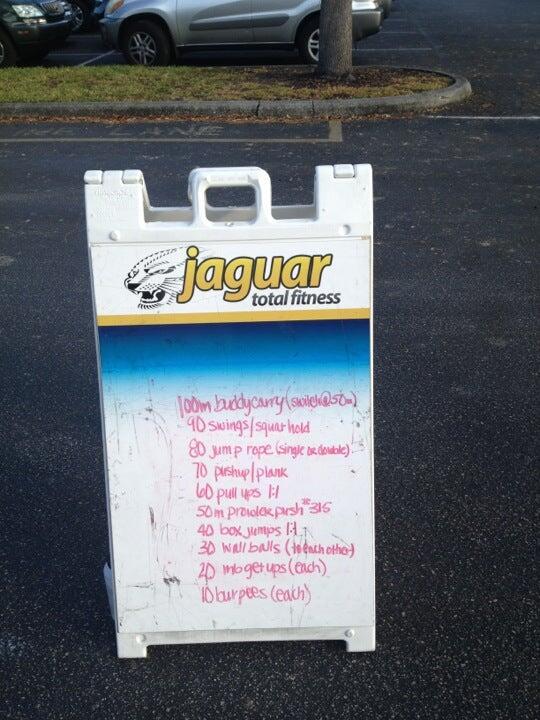 FIRE LANE
jaguar
total fitness
100m buddy carry (switch @ 50m)
90 swings/squat hold
80 jump rope (single or double)
70 pushup/plank
60 pull ups 1:1
50m prowler push #315
40 box jumps 1:1
30 wall balls (to each other)
20 mb get ups (each)
10 burpees (each)